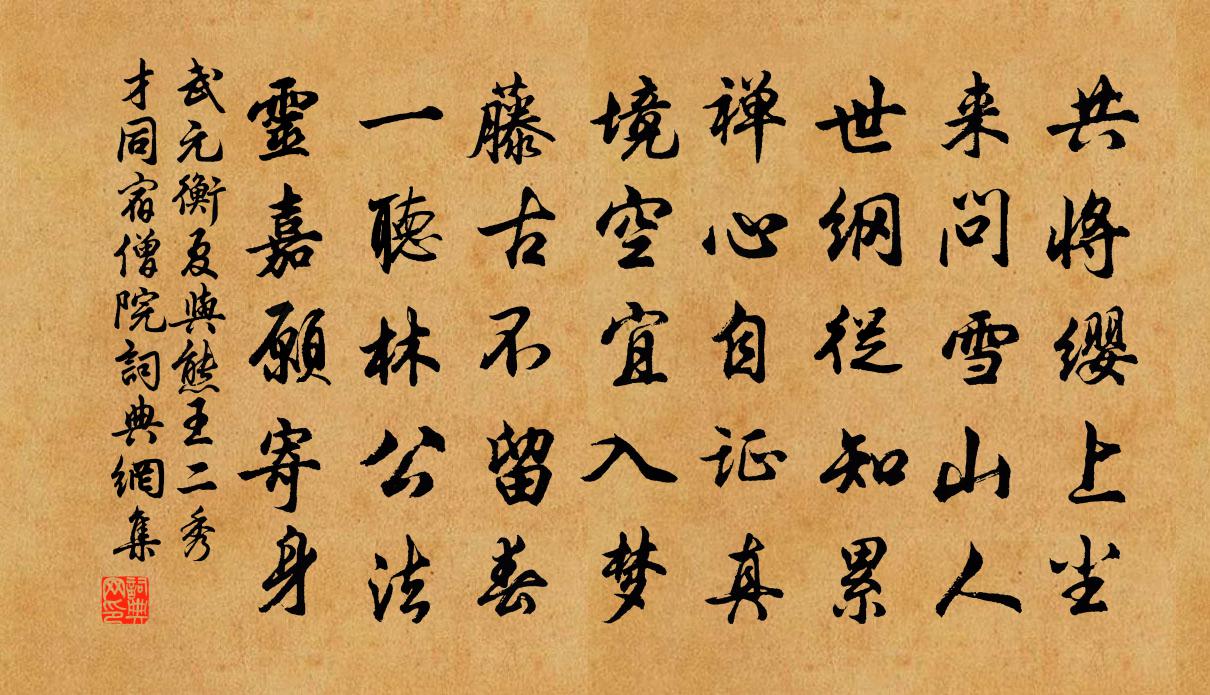 共将缨上尘
来问雪山人
世纲从知累
禅心自证真
境空宜入梦
藤古不留春
一聽林公法
靈嘉願寄身
武元衡夏與熊王二秀
才同宿僧院詞典網集
詞典網印